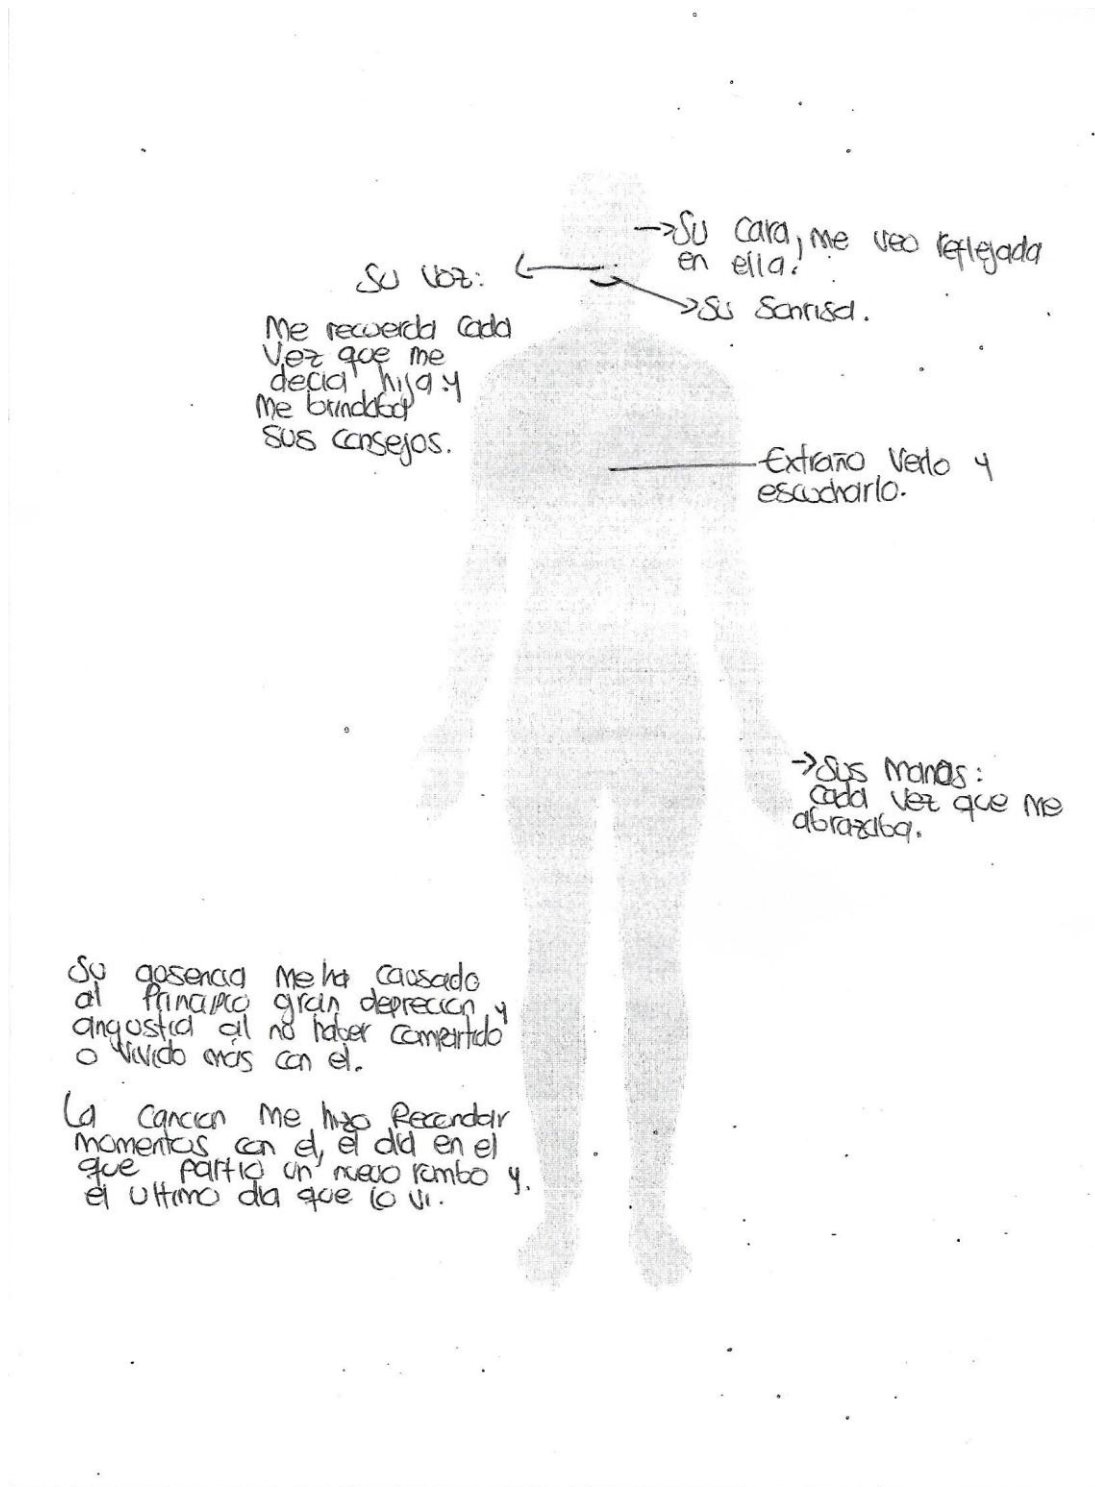 →Su cara, me veo reflejada
en ella.
Su voz:
→Su Sonrisa.
Me recuerda cada
Vez que me
decia hija y
Me brindaba
sus consejos.
Extraño Verlo y
escucharlo.
→Sus manos:
cada vez que me
abrazaba.
Su ausencia me ha causado
al Principio gran deprecion y
angustia al no haber compartido
o vivido más con el.
La cancion me hizo Recordar
momentos con el, el dia en el
que partio un nuevo rumbo y
el ultimo dia que lo vi.